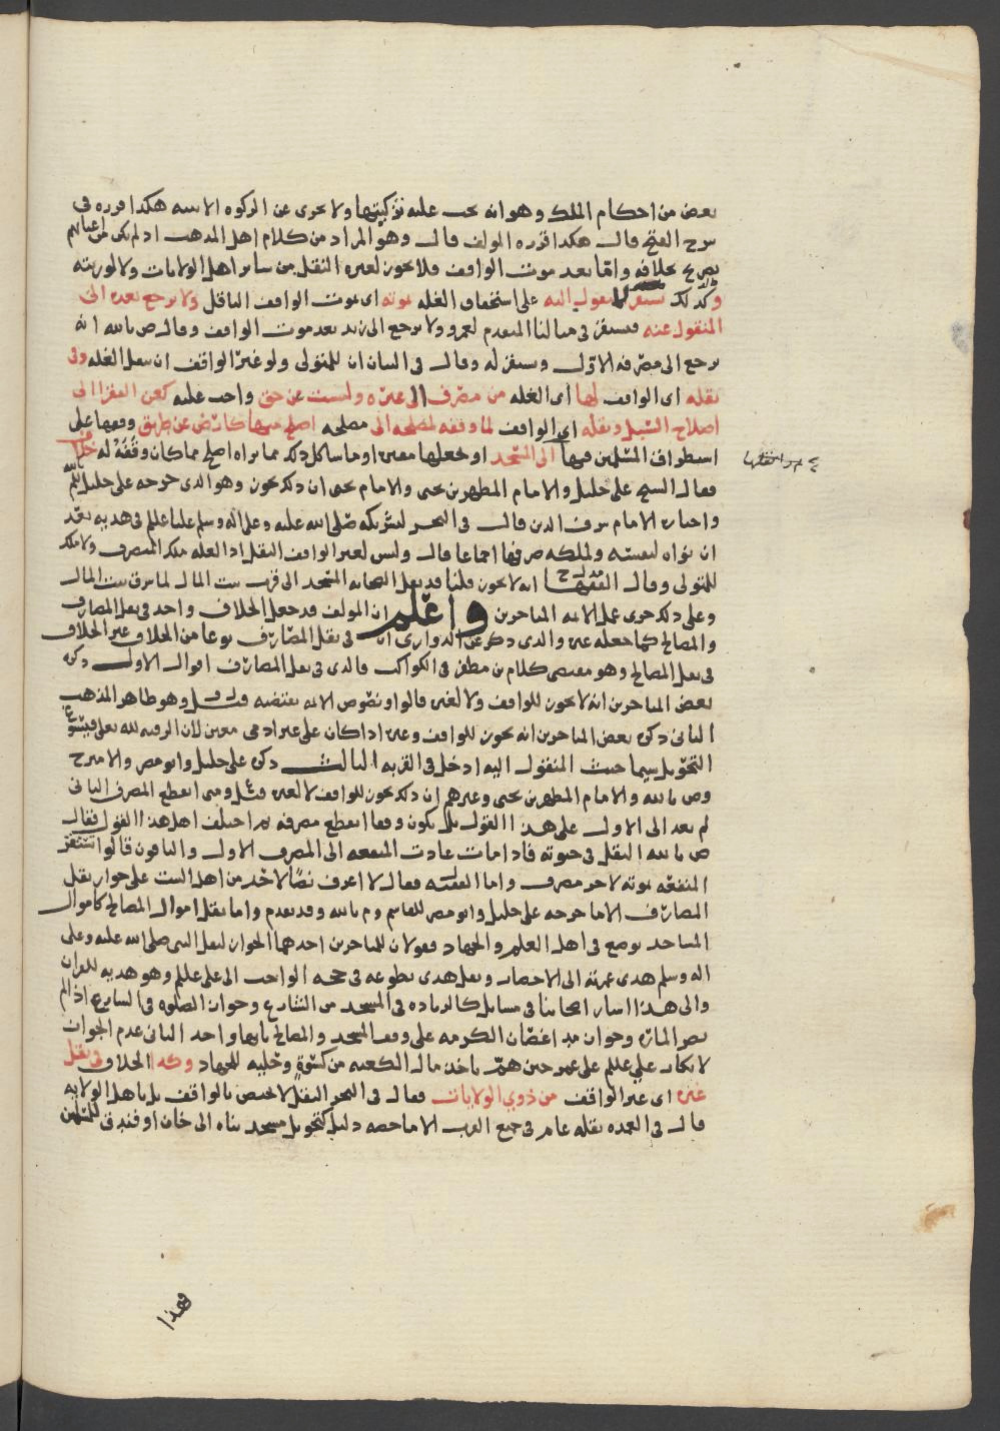 بعض من احكام الملك وهو انه يجب عليه تزكيتها ولا تجزى عن الزكوه الا بنيه هكذا قرره في
شرح الفتح قال هكذا قرره المولف قال وهو المراد من كلام اهل المذهب اذ لم يكن لمن عباراتهم
تصريح بخلافه واما بعد موت الواقف فلا يجوز لغيره النقل من سائر اهل الولايات ولا لورثته
وكذلك تستقر للمنقول اليه على استحقاق الغله بموته اي بموت الواقف الناقل ولا يرجع بعده الى
المنقول عنه فتستقر في مثالنا المتقدم لعمرو ولا يرجع الى زيد بعد موت الواقف وقال ص بالله انه
يرجع الى مصرفه الاول وتستقر له وقال في البيان ان للمتولي ولو غير الواقف ان ينقل الغله وفي
نقله اي الواقف لها اي الغله من مصرف الى غيره وليست عن حق واجب عليه كعن الفقرا الى
اصلاح السبيل ونقله اي الواقف لما وقفه لمصلحه الى مصلحه اصلح منها كارض عن طريق وقفها على
استطراق المسلمين فيها الى المسجد او يجعلها مقبره او ما شاكل ذلك مما يراه اصلح مما كان وقفه له خلاف
فقال الشيخ علي خليل والامام المطهر بن يحيى والامام يحيى ان ذلك يجوز وهو الذي خرجه علي خليل للم بالله
واختاره الامام شرف الدين قال في البحر لتشريكه صلى الله عليه وعلى اله وسلم عليا عليلم في هديه بعد
ان نواه لنفسه ولملكه صرفها اجماعا قال وليس لغير الواقف النقل اذ العله ملك المتصرف ولا ملك
للمتولي وقال الفقها انه لا يجوز قلنا قد نقل الصحابه المسجد الى قرب بيت المال لما سرق بيت المال
وعلى ذلك جرى عمل الائمه المتاخرين واعلم ان المولف قد جعل الخلاف واحد في نقل المصارف
والمصالح كما جعله غيره والذي ذكره عن الدواري ان في نقل المصارف نوعا من الخلاف غير الخلاف
في نقل المصالح وهو مقتضى كلام بن مظفر في الكواكب فالذي في نقل المصارف اقوال الاول ذكره
بعض المتاخرين انه لا يجوز للواقف ولا لغيره قالوا ونصوص الائمه تقتضيه وهو ظاهر المذهب
الثاني ذكره بعض المتاخرين انه يجوز للواقف وغيره اذا كان على غير ادمي معين لان الرقبه لله تعلى
التحويل سيما حيث المنقول اليه ادخل في القربه الثالث ذكره علي خليل وابو مضر والامير ح
وص بالله والامام المطهر بن يحيى وغيرهم ان ذلك يجوز للواقف لا لغيره ومتى انقطع المصرف الثاني
لم يعد الى الاول على هذا القول بل يكون وقفا انقطع مصرفه ثم اختلف اهل هذا القول فقال
ص بالله النقل في حيوته فاذا مات عادت المنفعه الى المصرف الاول والباقون قالوا تستقر
المنفعه بموته لاخر مصرف واما الفقيه فقال لا اعرف نصا لاحد من اهل البيت على جواز نقل
المصارف الا ما خرجه علي خليل وابو مضر للقاسم وم بالله وقد تقدم واما نقل اموال المصالح كاموال
المساجد توضع في اهل العلم والجهاد فقولان للمتاخرين احدهما الجواز لنقل النبي صلى الله عليه وعلى
اله وسلم هدي عمرته الى الاحصار ونقل هدي تطوعه في حجه الواجب الى علي عليلم وهو هديه للقران
والى هذا اشار اصحابنا في مسايل كالزياده في المسجد من الشارع وجواز الصلوه في الشارع اذ الم
تضر الماره وجواز مد اغصان الكرمه على وقف المسجد والمصالح باسرها واحد الثاني عدم الجواز
لانكار علي عليلم على عمر حين هم باخذ مال الكعبه من كسوه وحليه للجهاد وكذا الخلاف في نقل
غيره اي غير الواقف من ذوي الولايات فقال في البحر النقل لا يختص بالواقف بل باهل الولايه
قال في العمده نقله عام في جميع القرب الا ما خصه دليل كتحويل مسجد بناه الى خان او فندق للمسلمين
وهذا